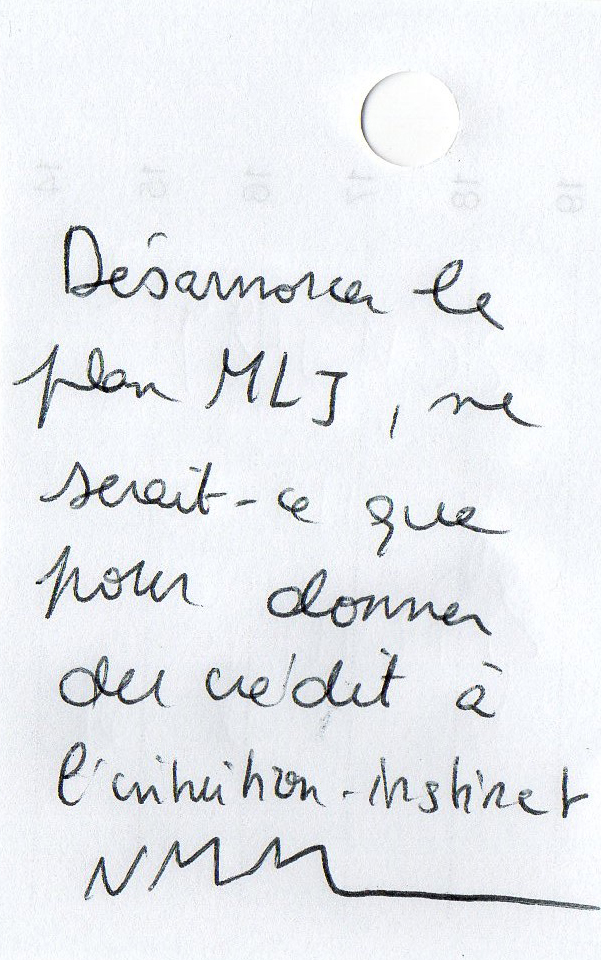 14 15 16 17 18 19
Désamorcer le
plan MLJ, ne
serait-ce que
pour donner
du crédit à
l'intuition-instinct
NMM